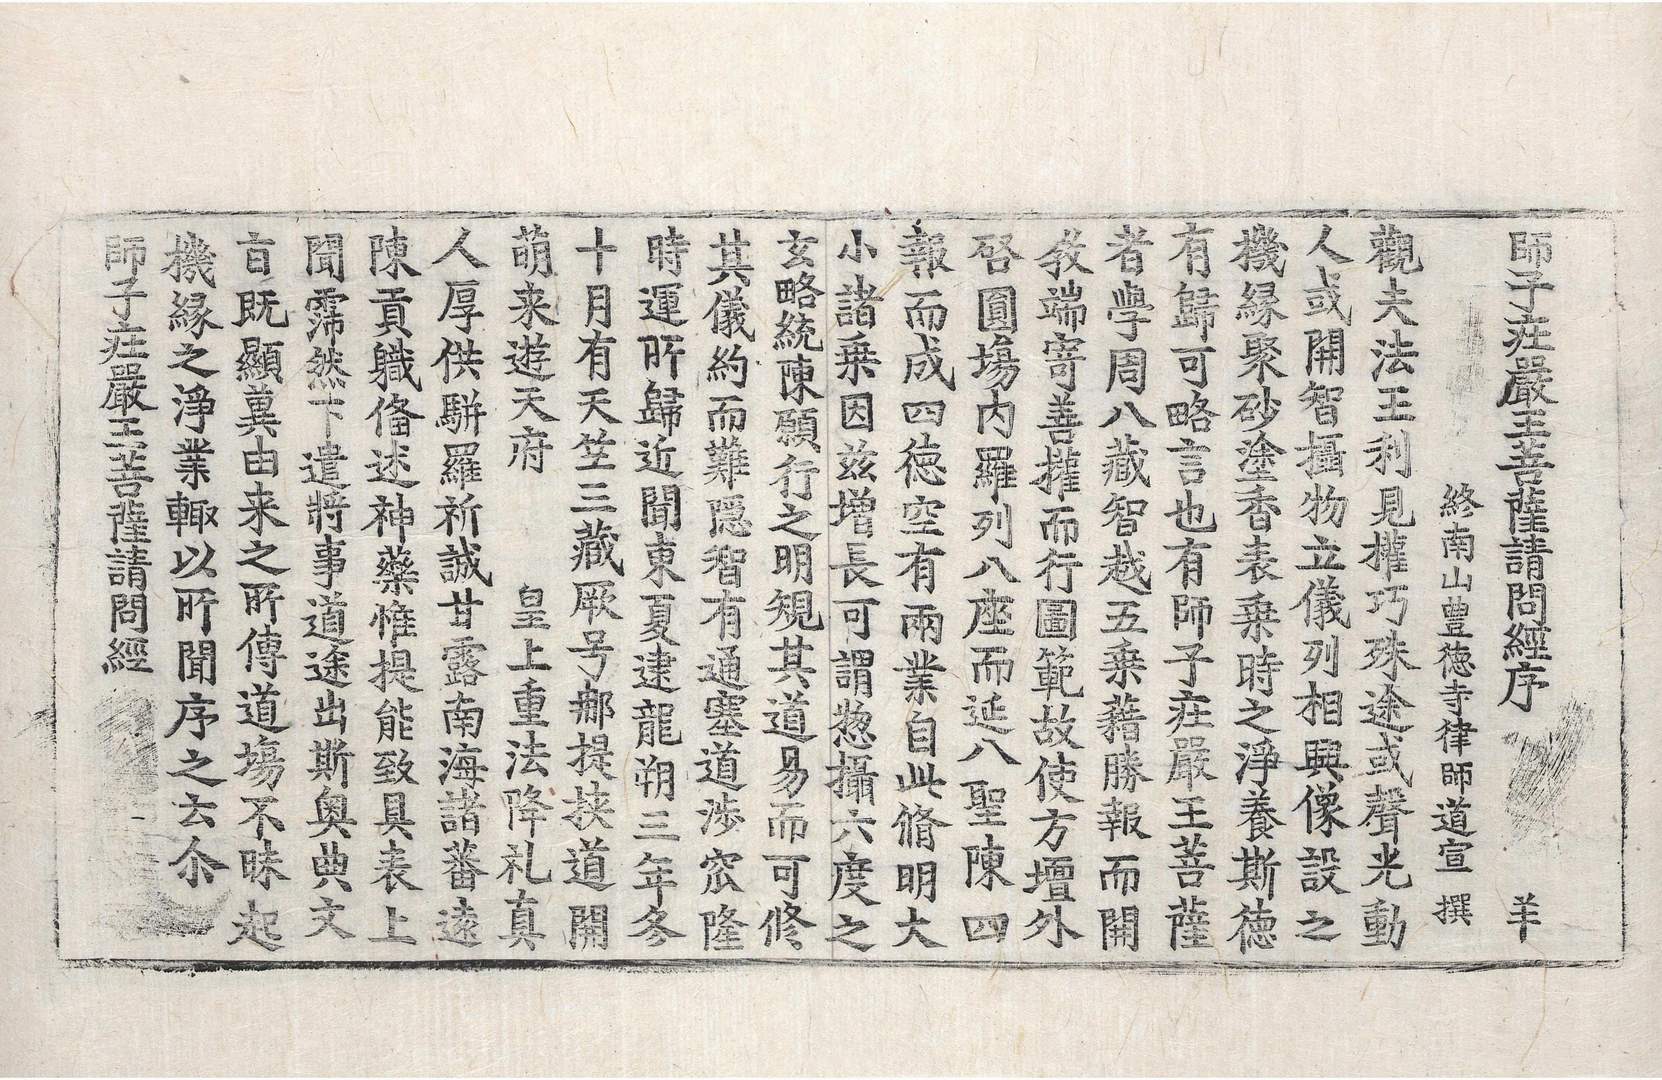 師子莊嚴王菩薩請問經序 羊
終南山豊徳寺律師道宣 撰
觀夫法王利見權巧殊途或聲光動
人或開智攝物立儀列相興像設之
機緣聚砂塗香表乗時之淨養斯德
有歸可略言也有師子莊嚴王菩薩
者學周八藏智越五乗藉勝報而開
教端寄善權而行圖範故使方壇外
啓圓塲内羅列八座而延八聖陳四
報而成四徳空有兩業自此脩明大
小諸乗因兹増長可謂惣攝六度之
玄略統陳願行之明規其道易而可修
其儀約而難隠智有通塞道渉宻隆
時運所歸近聞東夏逮龍朔三年冬
十月有天竺三藏厥号那提挾道開
萌来遊天府 皇上重法降礼真
人厚供駢羅祈誠甘露南海諸蕃遠
陳貢職俻述神藥惟提能致具表上
聞霈然下遣將事道途出斯奥典文
旨既顯蓂由来之所傳道塲不昧起
機緣之淨業輙以所聞序之云尒
師子莊嚴王菩薩請問經